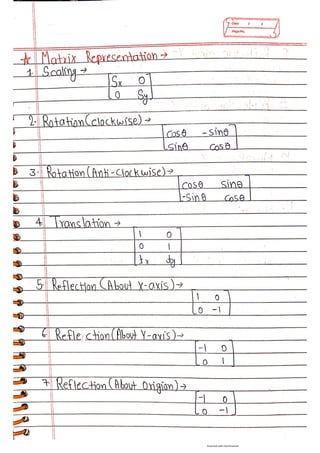 Date: / /
Page No.
★ Matrix Representation →
1. Scaling →
[Sx 0]
[0 Sy]
2. Rotation (clockwise) →
[cosθ -sinθ]
[sinθ cosθ]
3. Rotation (Anti-clockwise) →
[cosθ sinθ]
[-sinθ cosθ]
4. Translation →
[1 0]
[0 1]
[tx ty]
5. Reflection (About X-axis) →
[1 0]
[0 -1]
6. Reflection (About Y-axis) →
[-1 0]
[0 1]
7. Reflection (About Origian) →
[-1 0]
[0 -1]
Scanned with CamScanner